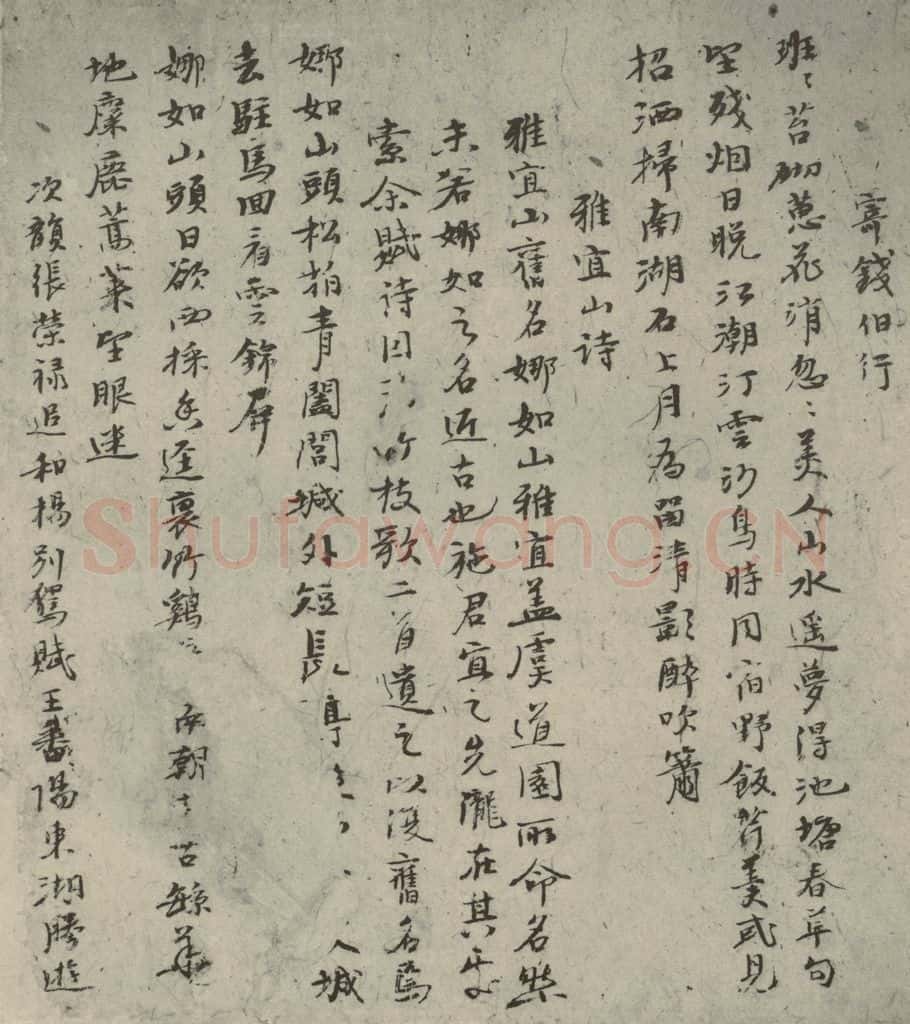 寄錢伯行
班〻苔砌蔥花消忽〻美人山水遥夢得池塘春草句
坐殘烟日晚江潮汀雲沙鳥時同宿野飯芹羹或見
招洒掃南湖石上月為留清影醉吹簫
雅宜山詩
雅宜山舊名娜如山雅宜盖虞道園所命名然
未若娜如之名近古也施君宜之先隴在其
索余賦詩因竹枝歌二首遺之以復舊名焉
娜如山頭松柏青闔閭城外短長亭入城
去駐馬回看雲錦屏
娜如山頭日欲西採香逕裏竹鷄朝華
地麋鹿蒿萊望眼迷
次韻張榮禄追和楊別駕賦王番陽東湖勝遊
Shufawang.CN